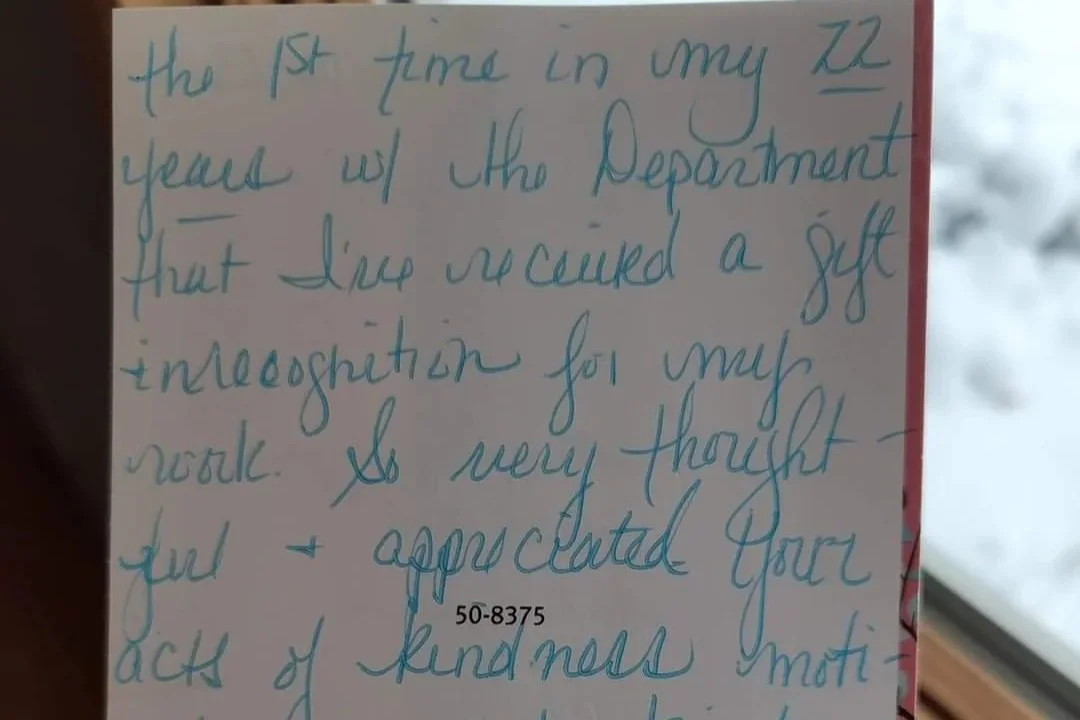 the 1st time in my 22
years w/ the Department
that I've received a gift
in recognition for my
work. So very thought-
ful + appreciated. Your
50-8375
acts of kindness moti-